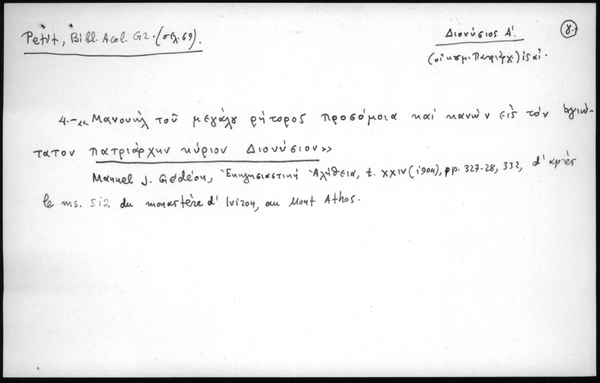 Petit, Bibl. Acol. Gr. (σελ. 69).
Διονύσιος Α΄.
(οἰκουμ. Πατριάρχ.)
4.- «Μανουὴλ τοῦ μεγάλου ῥήτορος προσόμοια καὶ κανὼν εἰς τὸν ἁγιώ-
τατον πατριάρχην κύριον Διονύσιον»
Manuel J. Gédéon, Ἐκκλησιαστικὴ Ἀλήθεια, t. XXIV (1904), pp. 327-28, 332, d'après
le ms. 512 du monastère d'Iviron, au Mont Athos.